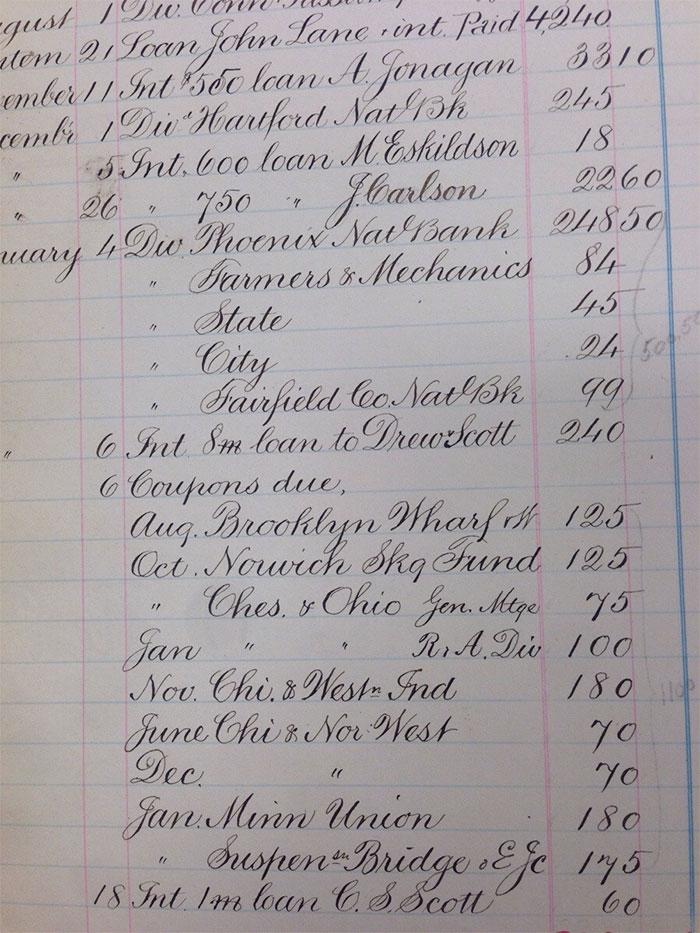 gust 1 Div. Conn
tem 21 Loan John Lane & int. Paid 4,240
ember 11 Int $550 loan A. Jonagan 33 10
cembr 1 Div. Hartford Natl Bk 245
" 5 Int. 600 loan M. Eskildson 18
" 26 " 750 " J. Carlson 22 60
nuary 4 Div. Phoenix Natl Bank 248 50
" Farmers & Mechanics 84
" State 45
" City 24
" Fairfield Co. Natl Bk 99
" 6 Int 8m loan to Drew & Scott 240
6 Coupons due,
Aug. Brooklyn Wharf & W 125
Oct. Norwich Skg Fund 125
" Ches. & Ohio Gen. Mtge 75
Jan " " R. & A. Div 100
Nov. Chi. & Westn Ind 180
June Chi & Nor. West 70
Dec. " 70
Jan. Minn Union 180
" Suspensn Bridge & E Jc 175
18 Int. 1m loan C. S. Scott 60